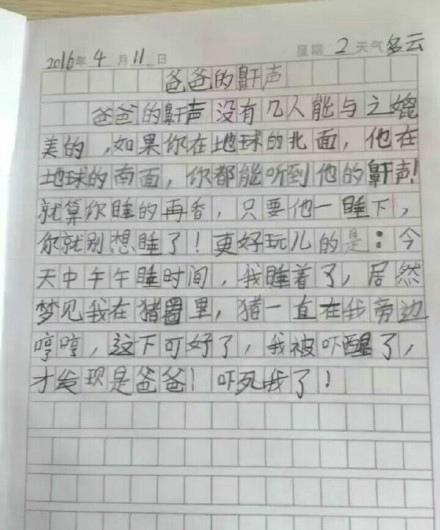 2016年4月11日 星期2天气多云
爸爸的鼾声
爸爸的鼾声没有几人能与之媲
美的，如果你在地球的北面，他在
地球的南面，你都能听到他的鼾声！
就算你睡的再香，只要他一睡下，
你就别想睡了！更好玩儿的是：今
天中午午睡时间，我睡着了，居然
梦见我在猪圈里，猪一直在我旁边
哼哼，这下可好了，我被吓醒了，
才发现是爸爸！吓死我了！